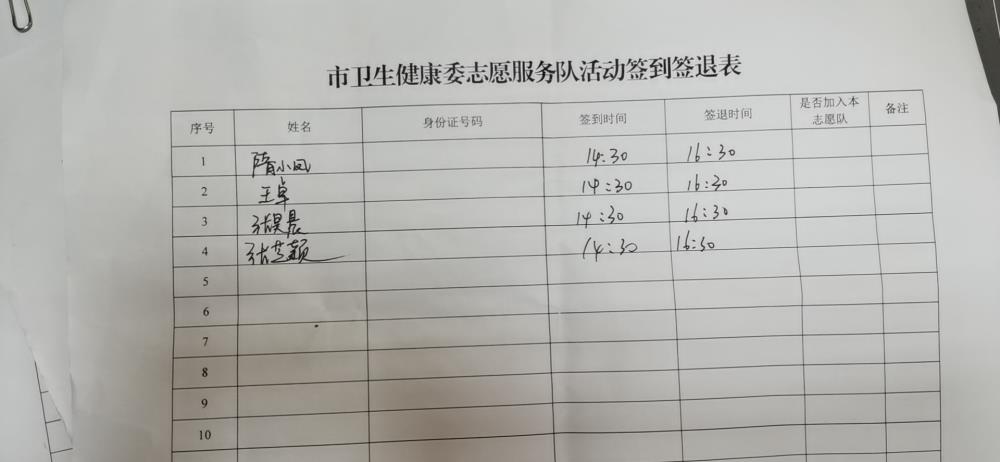 市卫生健康委志愿服务队活动签到签退表
序号 姓名 身份证号码 签到时间 签退时间 是否加入本志愿队 备注
1 隋小凤 14:30 16:30
2 王卓 14:30 16:30
3 张昊晨 14:30 16:30
4 张 14:30 16:30
5
6
7
8
9
10